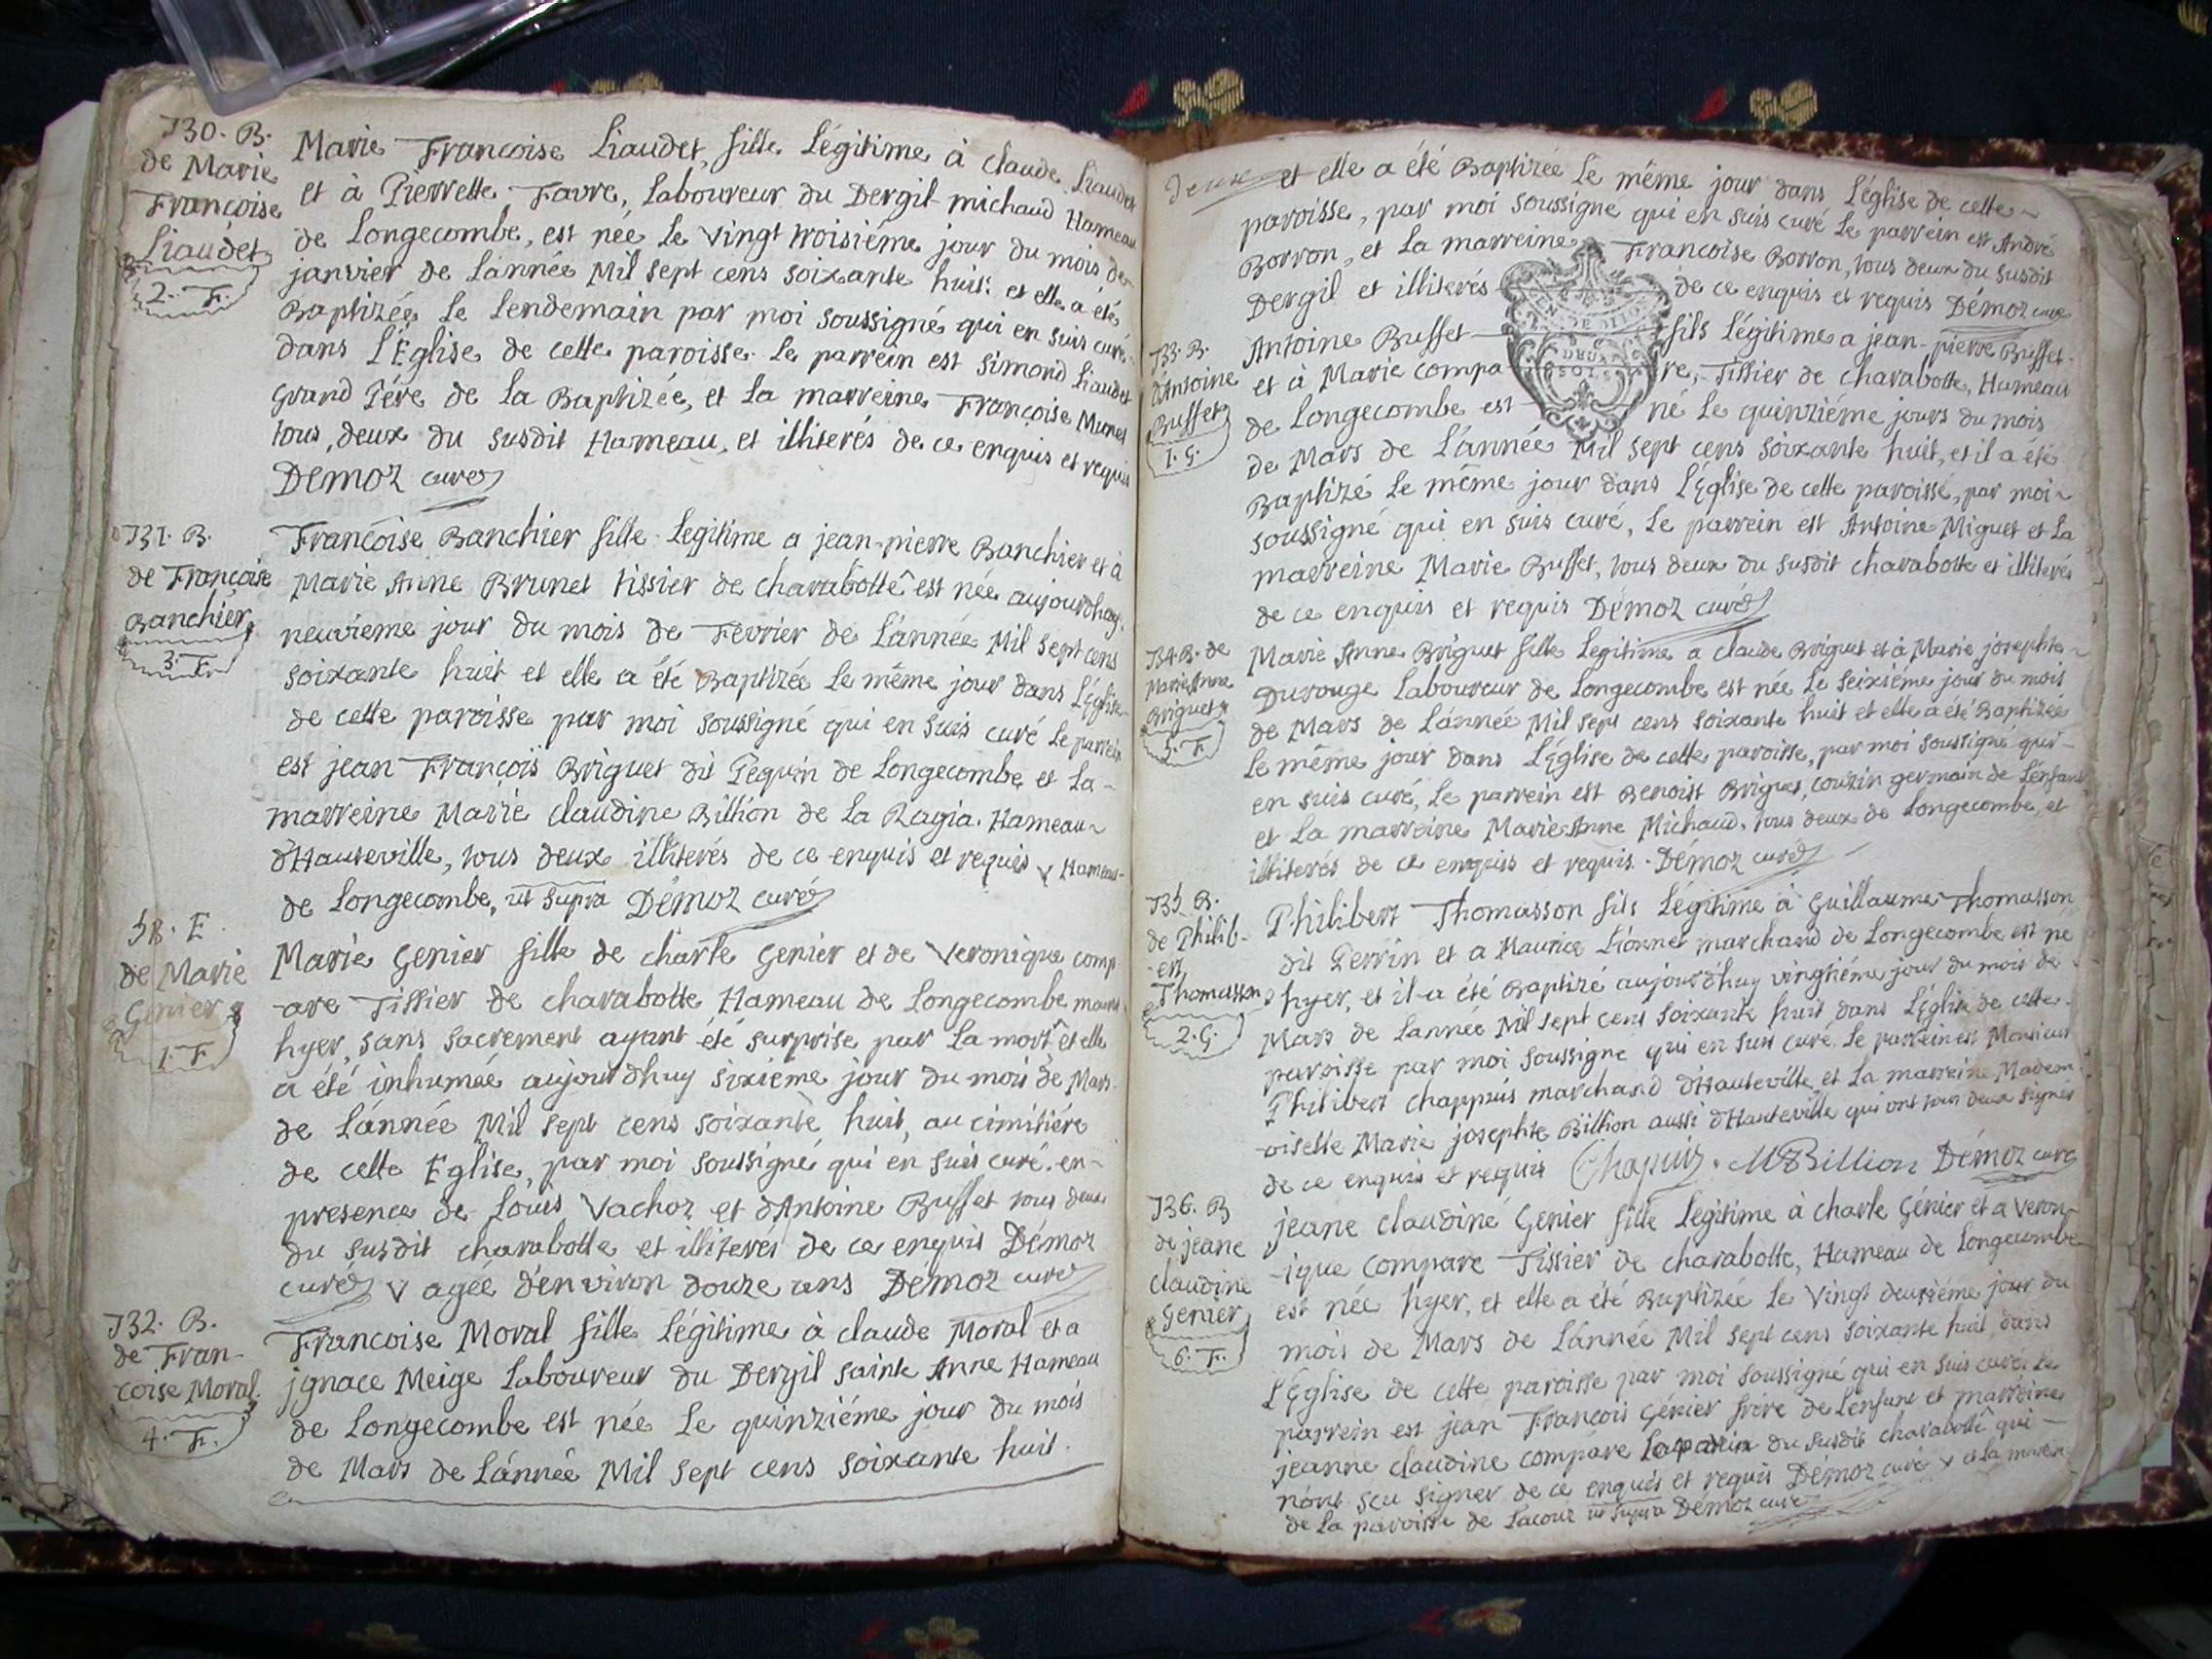 730. B.
de Marie
Françoise
Liaudet
2. F.
Marie Francoise Liaudet, fille Légitime à claude Liaudet
et à Pierrette Favre, Laboureur du Dergil michaud Hameau
de Longecombe, est née Le vingt troisiéme jour du mois de
janvier de Lánnée Mil sept cens soixante huit: et elle a été
Baptizée Le Lendemain par moi soussigné qui en suis curé
dans L'Eglise de cette paroisse. Le parrein est simond Liaudet
grand Pére de La Baptizée, et La marreine Françoise Munet
tous, deux du susdit Hameau, et illiterés de ce enquis et requis
Démoz curé
731. B.
de Françoise
Banchier
3. F.
Francoise Banchier fille Legitime a jean-pierre Banchier et à
Marie Anne Brunet tissier de charabotte^ est née aujourdhuy
neuvieme jour du mois de Février de Lánnée Mil sept cens
soixante huit et elle a été Baptizée Le même jour dans L'église
de cette paroisse par moi soussigné qui en suis curé Le parrein
est jean François Briguet dit Pequin de Longecombe et La-
marreine Marie claudine Billion de La Ragia Hameau
d'Hauteville, tous deux illiterés de ce enquis et requis v Hameau
de Longecombe, ut supra Démoz curé
58. E
de Marie
Genier
1. F
Marie Genier fille de charle Genier et de Veronique comp
-are Tissier de charabotte Hameau de Longecombe mourut
hyer, sans sacrement ayant été surprise par La mort^ et elle
a été inhumée aujourdhuy sixieme jour du mois de Mars
de Lánnée Mil sept cens soixante huit, au cimitiére
de cette Eglise, par moi soussigné qui en suis curé. en-
presence de Louis Vachoz et d'Antoine Buffet tous deux
du susdit charabotte et illiterés de ce enquis Démoz
curé v agée d'environ douze ans Démoz curé
732. B.
de Fran-
coise Moral
4. F.
Francoise Moral fille Légitime à claude Moral et a
jgnace Meige Laboureur du Dergil sainte Anne Hameau
de Longecombe est née Le quinziéme jour du mois
de Mars de Lánnée Mil sept cens soixante huit.
deux et elle a été Baptizée Le même jour dans L'église de cette
paroisse, par moi soussigné qui en suis curé Le parrein est André
Borron, et La marreine Francoise Borron, tous deux du susdit
Dergil et illiterés de ce enquis et requis Démoz curé
DEUX
SOLS
733. B.
d'Antoine
Buffet
1. G.
Antoine Buffet fils Légitime a jean-pierre Buffet
et à Marie compa re, Tissier de charabotte, Hameau
de Longecombe est né Le quinziéme jours du mois
de Mars de L'année Mil sept cens soixante huit, et il a été
Baptizé Le même jour dans L'Eglise de cette paroisse, par moi
soussigné qui en suis curé, Le parrein est Antoine Miguet et La
marreine Marie Buffet, tous deux du susdit charabotte et illiterés
de ce enquis et requis Démoz curé
734. B. de
Marie Anne
Briguet
5. F.
Marie Anne Briguet fille Legitime a claude Briguet et à Marie josephte
Durouge Laboureur de Longecombe est née Le seixiéme jour du mois
de Mars de Lánnée Mil sept cens soixante huit et elle a été Baptizée
Le même jour dans L'Eglise de cette paroisse, par moi soussigné qui-
en suis curé, Le parrein est Benoist Briguet, couzin germain de L'enfant
et La marreine Marie-Anne Michaud. tous deux de Longecombe, et
illiterés de ce enquis et requis. Démoz curé
735. B.
de Philib-
-ert
Thomasson
2. G.
Philibert Thomasson fils Légitime à Guillaume Thomasson
dit Perrin et a Maurice Lionnet marchand de Longecombe est né
hyer, et il a été Baptizé aujourd'huy vingtiéme jour du mois de
Mars de Lannée Mil sept cens soixante huit dans L'Eglise de cette
paroisse par moi soussigné qui en suis curé. Le parrein est Monsieur
Philibert chappuis marchand d'Hauteville et La marreine Madem-
-oiselle Marie josephte Billion aussi d'Hauteville qui ont tous deux signés
de ce enquis et requis Chapuis. M Billion Démoz curé
736. B
de jeane
claudine
Genier
6. F.
jeane claudine Genier fille Légitime à charle Génier et a Veron-
-ique compare Tissier de charabotte, Hameau de Longecombe
est née hyer, et elle a été Baptizée Le vingt deuxiéme jour du
mois de Mars de Lánnée Mil sept cens soixante huit, dans
L'Eglise de cette paroisse par moi soussigné qui en suis curé. Le
parrein est jean François Génier frére de L'enfant et marreine
jeanne claudine compare du susdit charabotte qui-
n'ont sçu signer de ce enquis et requis Démoz curé v et La marreine
de La paroisse de Lacoux ut supra Démoz curé